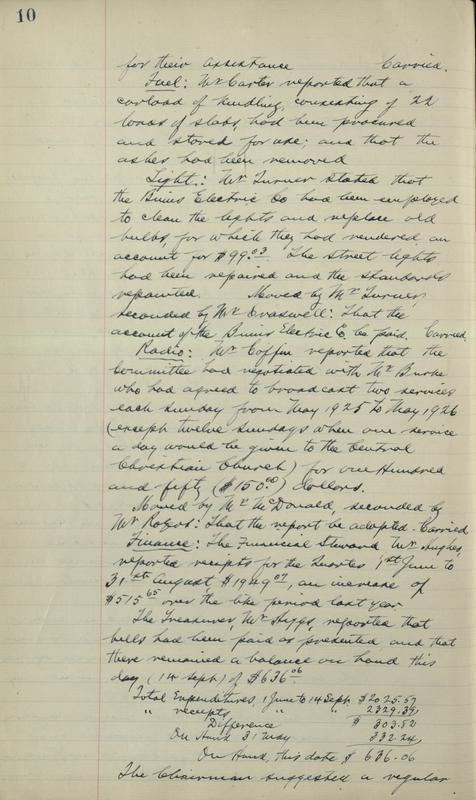 10
for their assistance Carried.
Fuel: Mr Carter reported that a
carload of kindling, consisting of 22
loads of slabs, had been procured
and stored for use; and that the
ashes had been removed
Light: Mr Turner stated that
the Binns Electric Co had been employed
to clean the lights and replace old
bulbs, for which they had rendered an
account for $99.03. The street lights
had been repaired and the standards
repainted. Moved by Mr Turner
seconded by Mr Braswell: That the
account of the Binns Electric C. be paid. Carried
Radio: Mr Coffin reported that the
Committee had negotiated with Mr Burke
who had agreed to broadcast two services
each Sunday from May 1925 to May 1926
(except twelve Sundays when one service
a day would be given to the Central
Christian Church) for one Hundred
and fifty ($150.00) dollars.
Moved by Mr McDonald, seconded by
Mr Rogers: That the report be adopted - Carried
Finance: The Financial Steward Mr Hughes,
reported receipts for the Quarter, 1st June to
31st August, $1949.07, an increase of
$515.65 over the like period last year
The Treasurer, Mr Shipps, reported that
bills had been paid as presented, and that
there remained a balance on hand this
day (14 Sept) of $636.06
Total Expenditures, 1 June to 14 Sept. $2025.57
" receipts, " " 2329.39,
Difference $ 303.82
On Hand 31 May 332.24,
On Hand, this date $ 636.06
The Chairman suggested a regular